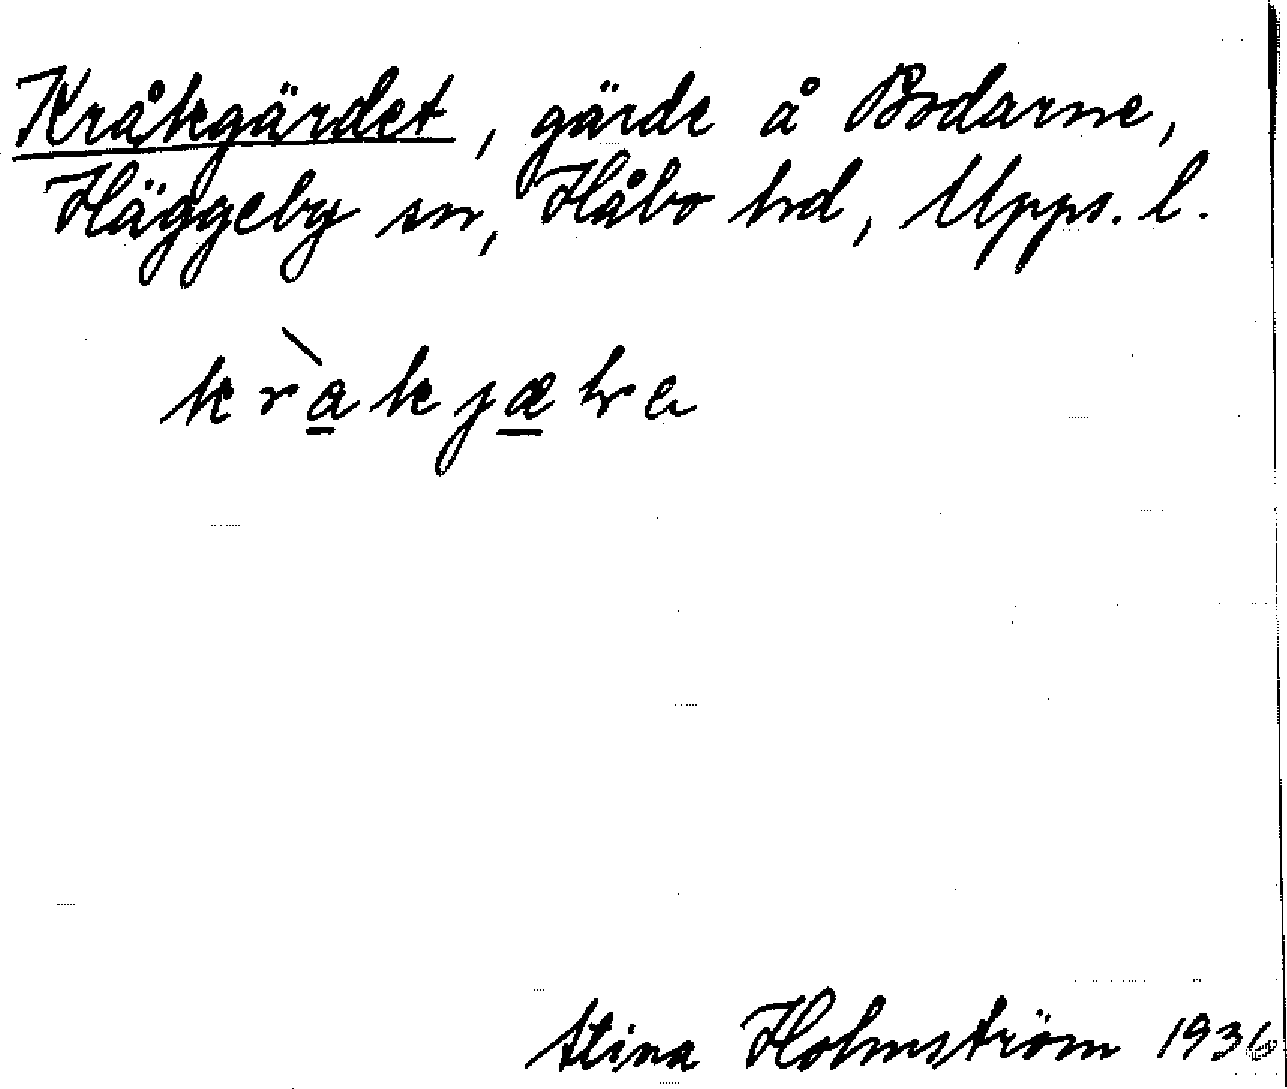 Kråkgärdet, gärde å Bodarne,
Häggeby sn, Håbo hd, Upps. l.
kràkjæḷɐ
Stina Holmström 1936